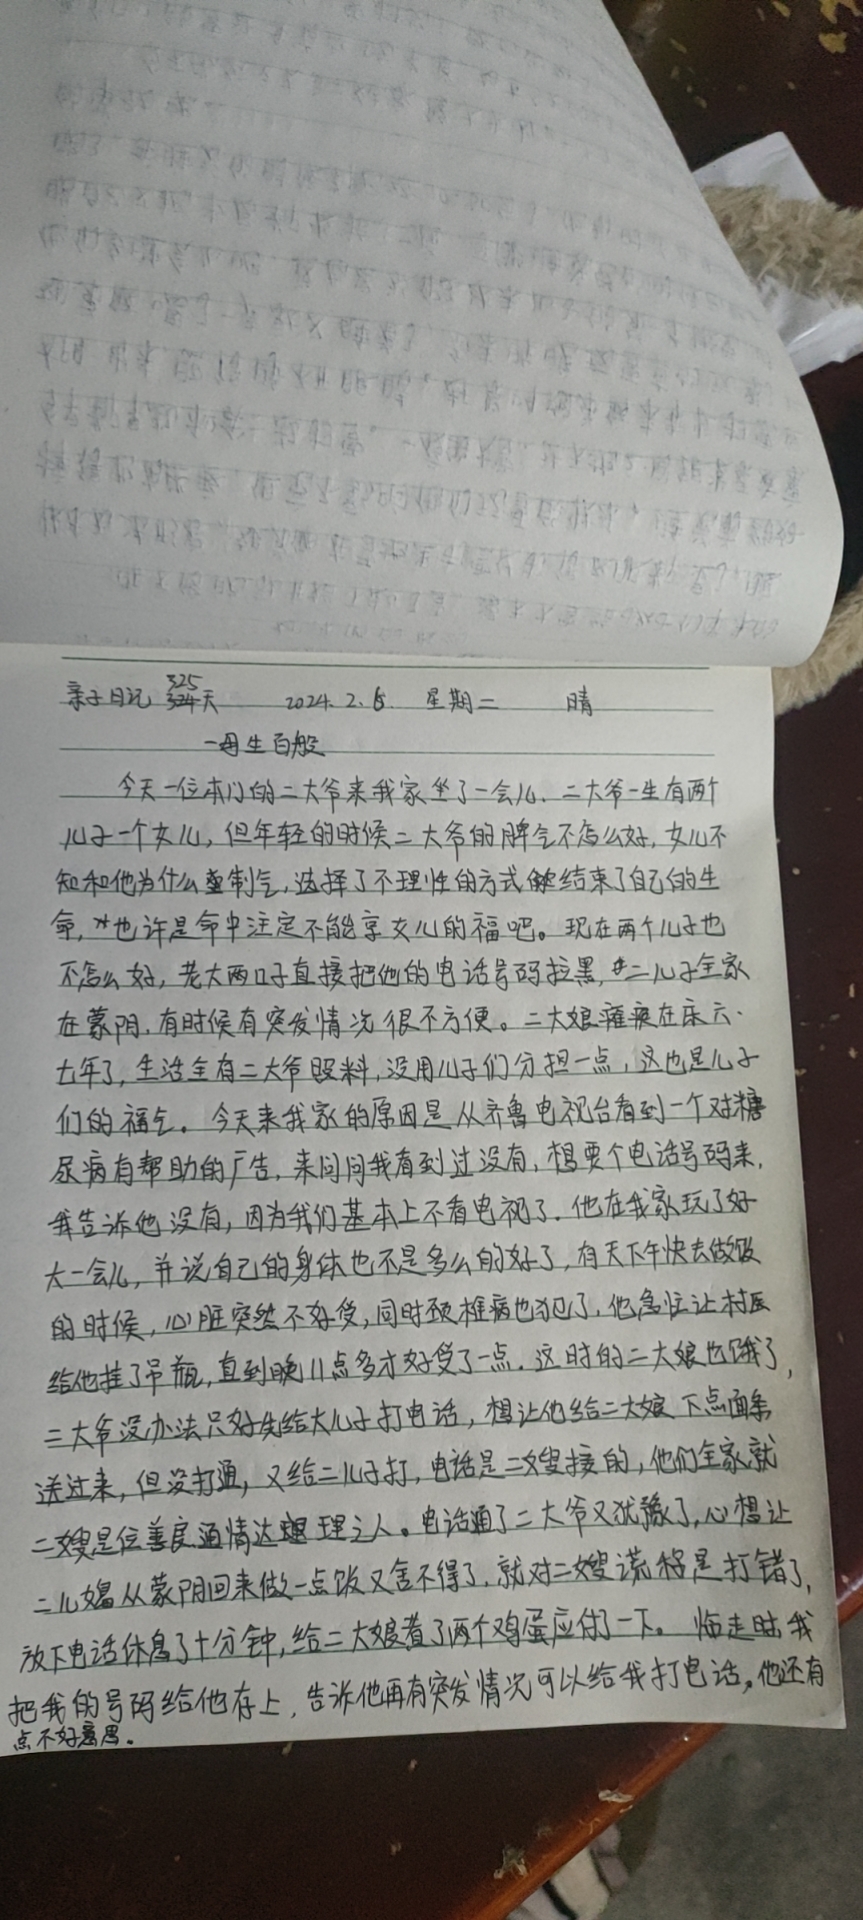 亲子日记 325天 2024.2.6. 星期二 晴
一母生百般
今天一位本门的二大爷来我家坐了一会儿、二大爷一生有两个
儿子一个女儿，但年轻的时候二大爷的脾气不怎么好，女儿不
知和他为什么制气，选择了不理性的方式结束了自己的生
命，也许是命中注定不能享女儿的福吧。现在两个儿子也
不怎么好，老大两口子直接把他的电话号码拉黑，二儿子全家
在蒙阴，有时候有突发情况很不方便。二大娘瘫痪在床六、
七年了，生活全有二大爷照料，没用儿子们分担一点，这也是儿子
们的福气。今天来我家的原因是从齐鲁电视台看到一个对糖
尿病有帮助的广告，来问问我看到过没有，想要个电话号码来，
我告诉他没有，因为我们基本上不看电视了．他在我家玩了好
大一会儿，并说自己的身体也不是多么的好了，有天下午快去做饭
的时候，心脏突然不好受，同时颈椎病也犯了，他急忙让村医
给他挂了吊瓶，直到晚11点多才好受了一点．这时的二大娘也饿了，
二大爷没办法只好先给大儿子打电话，想让他给二大娘下点面条
送过来，但没打通，又给二儿子打，电话是二嫂接的，他们全家就
二嫂是位善良通情达理之人。电话通了二大爷又犹豫了，心想让
二儿媳从蒙阴回来做一点饭又舍不得了，就对二嫂谎称是打错了，
放下电话休息了十分钟，给二大娘煮了两个鸡蛋应付了一下。临走时我
把我的号码给他存上，告诉他再有突发情况可以给我打电话。他还有
点不好意思。